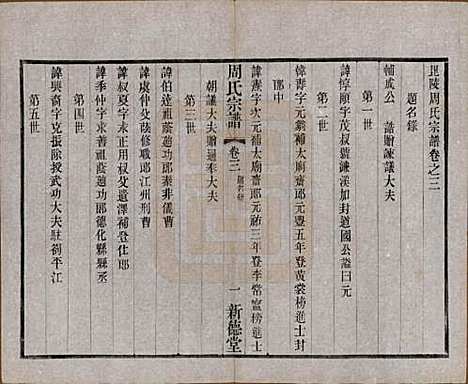 毘陵周氏宗譜卷之三
題名錄
輔成公 誥贈諫議大夫
第一世
諱惇頤字茂叔號濂溪加封道國公諡曰元
第二世
諱壽字元翁補太廟齋郎元豐五年登黃裳榜進士封
郎中
諱燾字次元補太廟齋郎元祐三年登李常寧榜進士
朝議大夫贈通奉大夫
第三世
周氏宗譜 卷三 題名錄 一 新德堂
諱伯逵祖蔭迪功郎泰州儀曹
諱虞仲父蔭修職郎江州刑曹
諱叔夏字求正用叔父遺澤補登仕郎
諱季仲字求善祖蔭迪功郎德化縣縣丞
第四世
諱興裔字克振除授武功大夫駐劄平江
第五世